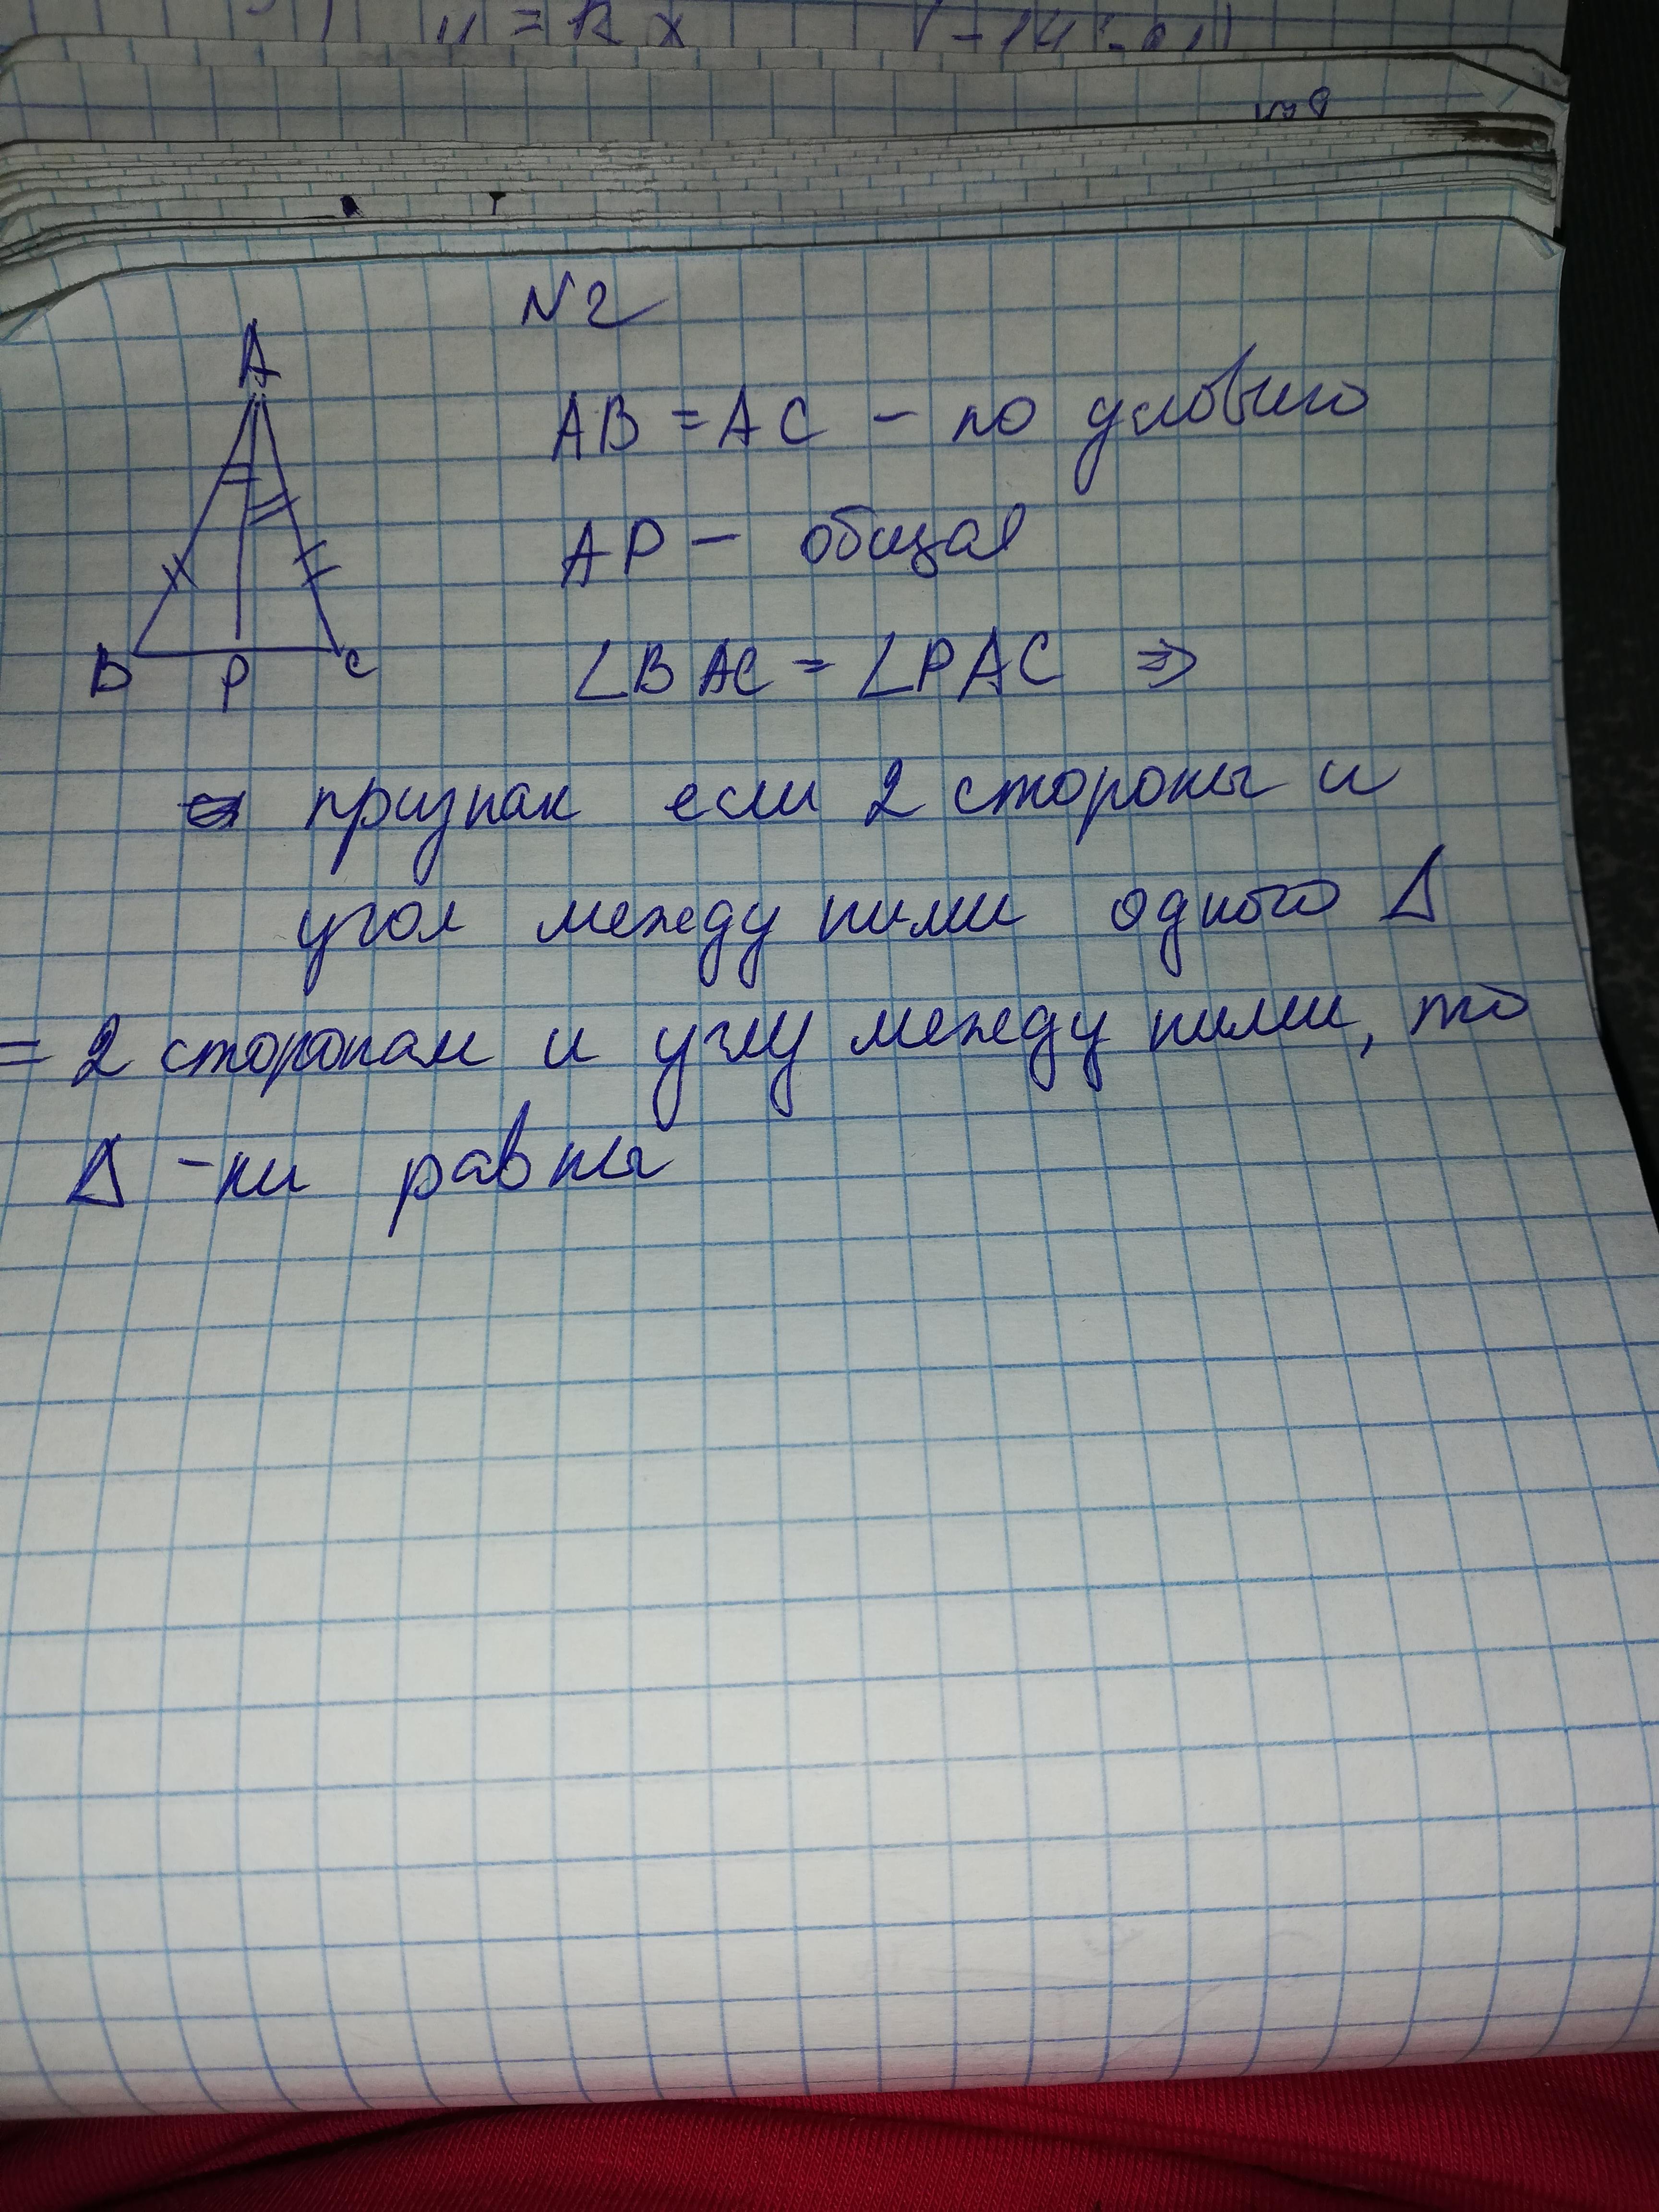 y = kx
№2
A
B
P
C
AB = AC - по условию
AP - общая
∠BAC = ∠PAC ⇒
признак если 2 стороны и
угол между ними одного Δ
= 2 сторонам и углу между ними, то
Δ-ки равны